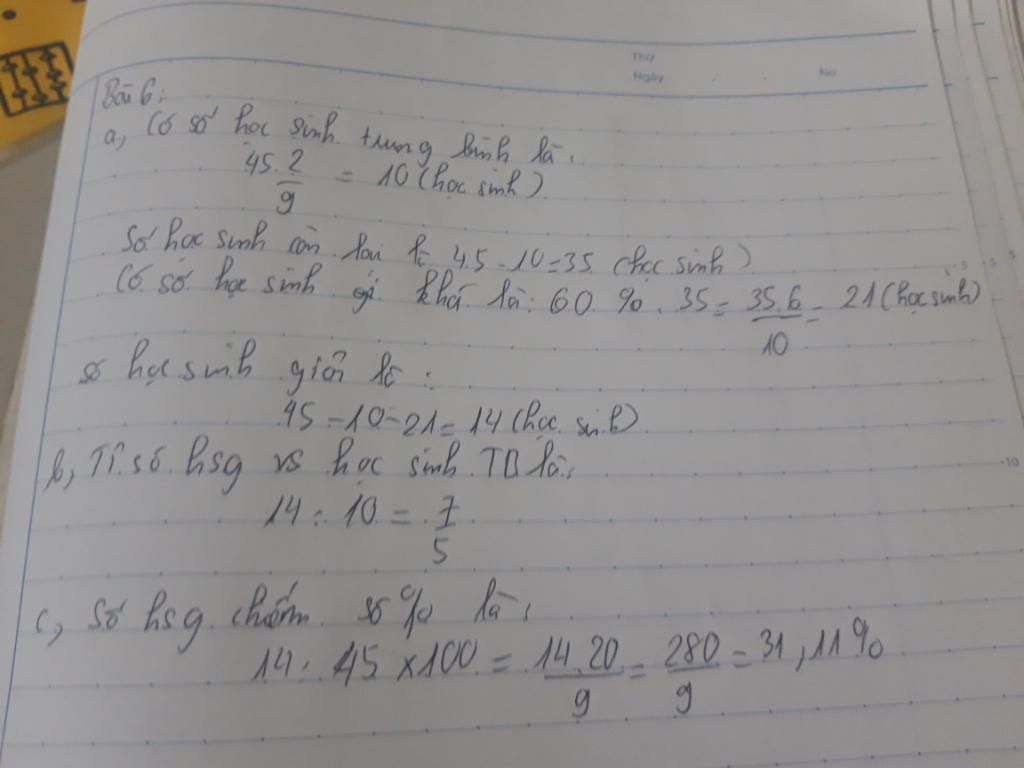 Thứ
Ngày No.
Bài 6:
a, Có số học sinh trung bình là:
45.2/9 = 10 (học sinh)
Số học sinh còn lại là 45 - 10 = 35 (học sinh)
Có số học sinh khá là: 60 % . 35 = 35.6/10 = 21 (học sinh)
số học sinh giỏi là :
45 - 10 - 21 = 14 (học sinh)
b, Tỉ số hsg vs học sinh TB là:
14 : 10 = 7/5
c, Số hsg chiếm số % là:
14 : 45 x 100 = 14.20/9 = 280/9 = 31,11%
5
10